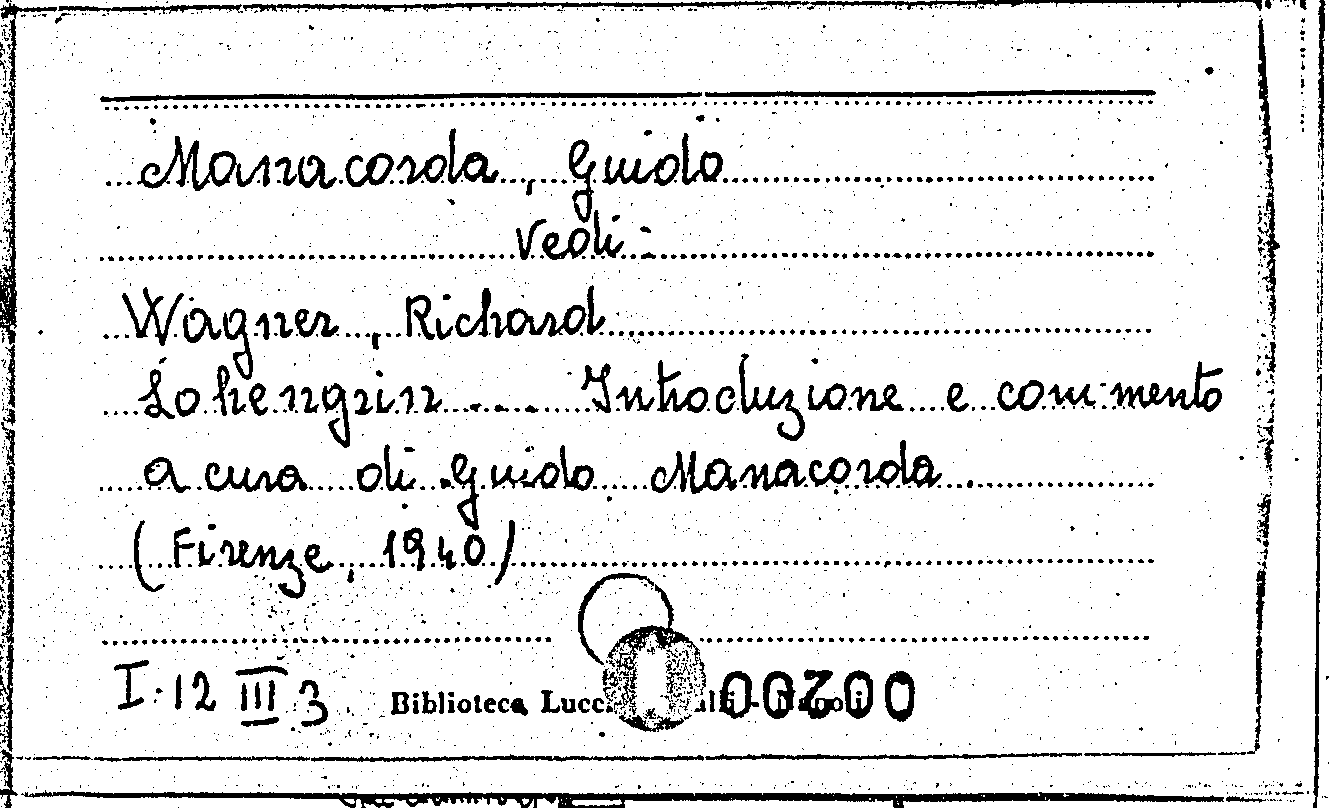 Manacorda, Guido
Vedi:
Wagner, Richard
Lohengrin .... Introduzione e commento
a cura di Guido Manacorda.
(Firenze, 1940)
I. 12 III 3 Biblioteca 00200